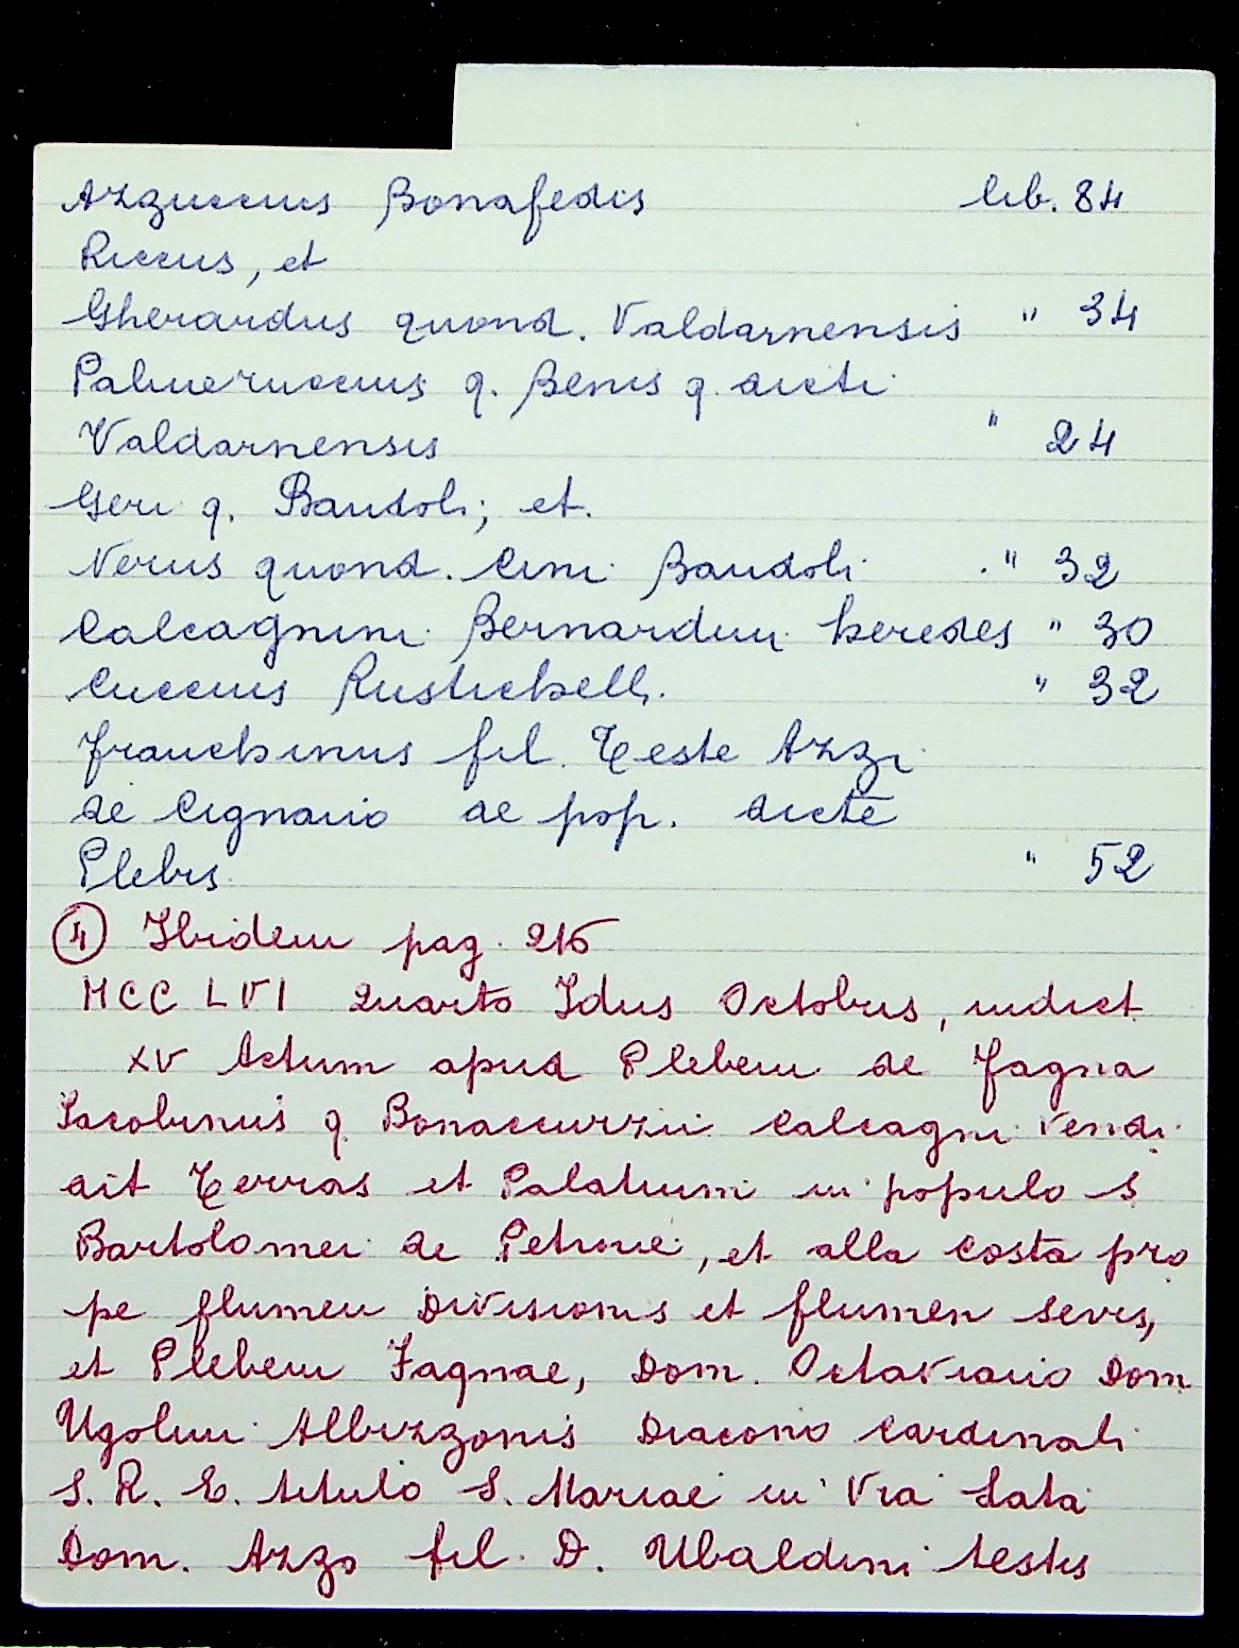 Azzuccius Bonafedis lib. 84
Riccus, et
Gherardus quond. Valdarnensis " 34
Palmeruccius q. Benis q. dicti
Valdarnensis " 24
Geri q. Baudoli; et.
Nerus quond. Cini Baudoli " 32
Calcagnini Bernardini heredes " 30
Cuccius Rustichelli. " 32
Franchinus fil. Teste Azzi
de Cignano de pop. dicte
Plebis " 52
④ Ibidem pag. 216
MCC LVI Quarto Idus Octobris, indict
XV Actum apud Plebem de Fagna
Iacobinus q. Bonaccurzii Calcagni vendi
dit Terras et Palatium in populo S
Bartolomei de Petrone, et alla costa pro
pe flumen Divisionis et flumen Sevis,
et Plebem Fagnae, Dom. Octaviano Dom
Ugolini Albizzonis Diacono Cardinali
S. R. E. titulo S. Mariae in Via Lata
Dom. Azzo fil. D. Ubaldini testis